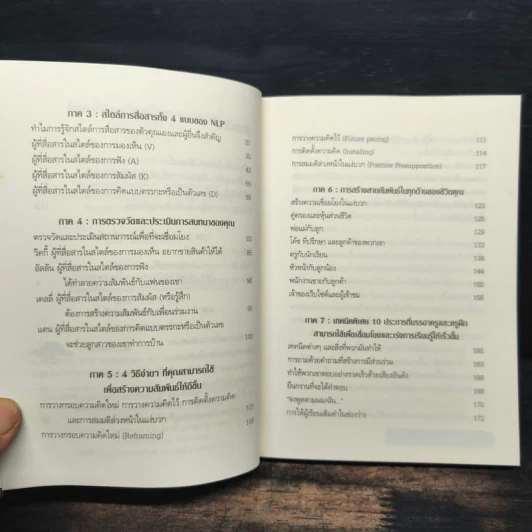 ภาค 3 : สไตล์การสื่อสารทั้ง 4 แบบของ NLP
ทำไมการรู้จักสไตล์การสื่อสารของตัวคุณเองและผู้อื่นจึงสำคัญ 27
ผู้ที่สื่อสารในสไตล์ของการมองเห็น (V)
ผู้ที่สื่อสารในสไตล์ของการฟัง (A)
ผู้ที่สื่อสารในสไตล์ของการสัมผัส (K)
ผู้ที่สื่อสารในสไตล์ของการคิดแบบตรรกะหรือเป็นตัวเลข (D)
ภาค 4 : การตรวจวัดและประเมินการสนทนาของคุณ
ตรวจวัดและประเมินสถานการณ์เพื่อที่จะเชื่อมโยง
วิคกี้ ผู้ที่สื่อสารในสไตล์ของการมองเห็น อยากขายสินค้าให้ได้
อัลลัน ผู้ที่สื่อสารในสไตล์ของการฟัง
ได้ทำลายความสัมพันธ์กับแฟนของเขา
เคลลี่ ผู้ที่สื่อสารในสไตล์ของการสัมผัส (หรือรู้สึก)
ต้องการสร้างความสัมพันธ์กับเพื่อนร่วมงาน
แดน ผู้ที่สื่อสารในสไตล์ของการคิดแบบตรรกะหรือเป็นตัวเลข
จะช่วยลูกสาวของเขาทำการบ้าน 100
ภาค 5 : 4 วิธีง่ายๆ ที่คุณสามารถใช้
เพื่อสร้างความสัมพันธ์ให้ดีขึ้น
การวางกรอบความคิดใหม่ การวางความคิดไว้ การติดตั้งความคิด
และการสมมติล่วงหน้าในแง่บวก
การวางกรอบความคิดใหม่ (Reframing)
การวางความคิดไว้ (Future pacing) 111
การติดตั้งความคิด (Installing) 116
การสมมติล่วงหน้าในแง่บวก (Positive Presupposition) 118
ภาค 6 : การสร้างสายสัมพันธ์ในทุกด้านของชีวิตคุณ
สร้างความเชื่อมโยงในแง่บวก 122
คู่ครองและหุ้นส่วนชีวิต
พ่อแม่กับลูก
โค้ช ที่ปรึกษา และลูกค้าของพวกเขา
ครูกับนักเรียน
หัวหน้ากับลูกน้อง
พนักงานขายกับลูกค้า
เจ้าของเว็บไซต์และผู้เข้าชม
ภาค 7 : เทคนิคพิเศษ 10 ประการที่บรรดาครูและครูฝึก
สามารถใช้เพื่อเชื่อมโยงและเร่งการเรียนรู้ให้เร็วขึ้น
เทคนิคต่างๆ และสิ่งที่พวกมันทำให้
การถามด้วยคำถามที่สร้างการมีส่วนร่วม
ทำให้พวกเขาตอบอย่างรวดเร็วด้วยเสียงอันดัง
ยืนกรานที่จะได้คำตอบ 168
"จงพูดตามผมกลับ..."
การให้ผู้เรียนเติมคำในช่องว่าง 172